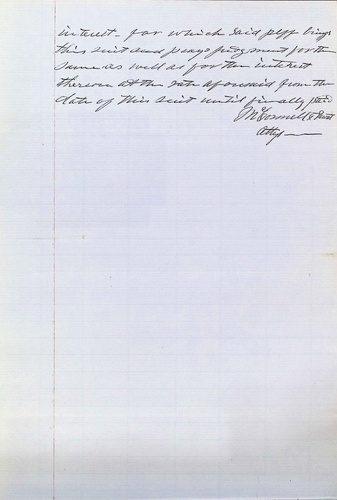 interest - for which said plff brings
this suit and prays judgment for the
same as well as for the interest
thereon at the rate aforesaid from the
date of this suit until finally paid
McConnell &
Atty